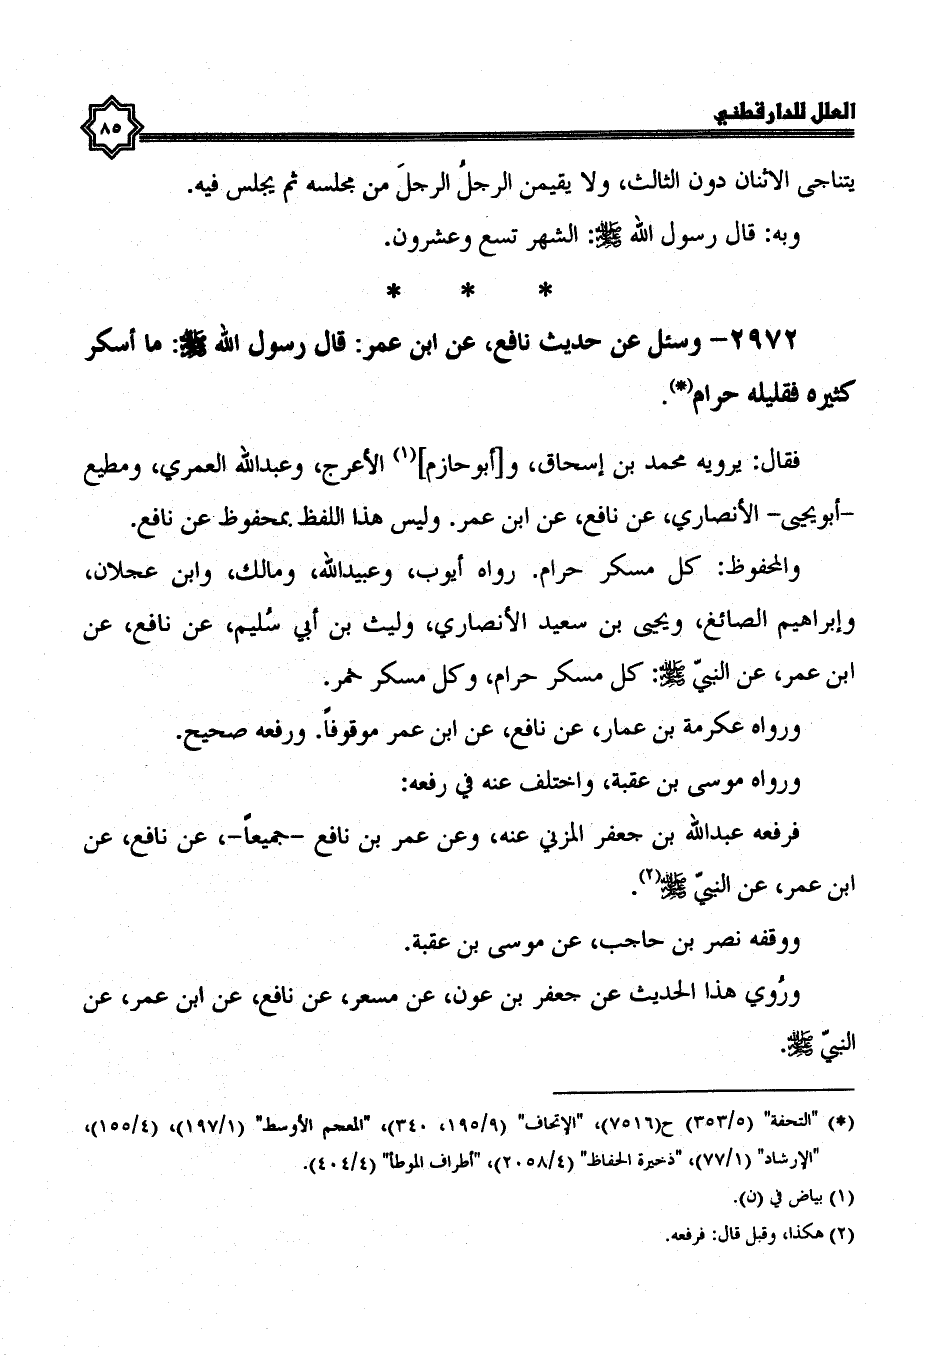 العلل للدارقطني
٨٥
يتناجى الاثنان دون الثالث، ولا يقيمن الرجلُ الرجلَ من مجلسه ثم يجلس فيه.
وبه: قال رسول الله ﷺ: الشهر تسع وعشرون.
* * *
٢٩٧٢- وسئل عن حديث نافع، عن ابن عمر: قال رسول الله ﷺ: ما أسكر
كثيره فقليله حرام(*).
فقال: يرويه محمد بن إسحاق، و[أبوحازم](١) الأعرج، وعبدالله العمري، ومطيع
-أبويحيى- الأنصاري، عن نافع، عن ابن عمر. وليس هذا اللفظ بمحفوظ عن نافع.
والمحفوظ: كل مسكر حرام. رواه أيوب، وعبيدالله، ومالك، وابن عجلان،
وإبراهيم الصائغ، ويحيى بن سعيد الأنصاري، وليث بن أبي سُليم، عن نافع، عن
ابن عمر، عن النبيّ ﷺ: كل مسكر حرام، وكل مسكر خمر.
ورواه عكرمة بن عمار، عن نافع، عن ابن عمر موقوفاً. ورفعه صحيح.
ورواه موسى بن عقبة، واختلف عنه في رفعه:
فرفعه عبدالله بن جعفر المزني عنه، وعن عمر بن نافع -جميعاً-، عن نافع، عن
ابن عمر، عن النبيّ ﷺ(٢).
ووقفه نصر بن حاجب، عن موسى بن عقبة.
ورُوي هذا الحديث عن جعفر بن عون، عن مسعر، عن نافع، عن ابن عمر، عن
النبيّ ﷺ.
(*) "التحفة" (٣٥٣/٥) ح(٧٥١٦)، "الإتحاف" (١٩٥/٩، ٣٤٠)، "المعجم الأوسط" (١٩٧/١)، (١٥٥/٤)،
"الإرشاد" (٧٧/١)، "ذخيرة الحفاظ" (٢٠٥٨/٤)، "أطراف الموطأ" (٤٠٤/٤).
(١) بياض في (ن).
(٢) هكذا، وقبل قال: فرفعه.